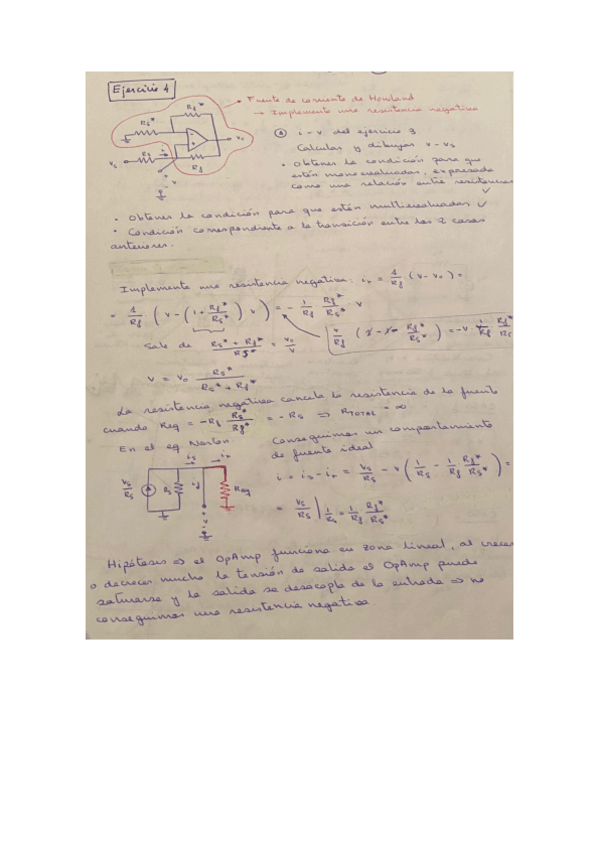 Ejercicio 4
Fuente de corriente de Howland
→ Implementa una resistencia negativa
Rf*
Rs*
Vs Rs i Rf Vo
+ V -
i - v del ejercicio 3
Calculas y dibujas v - vs
• Obtener la condición para que
estén monoevaluadas, expresada
como una relación entre resistencias ✓
• Obtener la condición para que estén multievaluadas ✓
• Condición correspondiente a la transición entre los 2 casos
anteriores.
Implementa una resistencia negativa: ir = 1/Rf (v - vo) =
= 1/Rf (v - (1 + Rf*/Rs*) v) = - 1/Rf Rf*/Rs* v
Sale de Rs* + Rf* / Rs* = vo/v
v = vo Rs* / (Rs* + Rf*)
La resistencia negativa cancela la resistencia de la fuente
cuando Req = -Rf Rs*/Rf* = -Rs ⇒ RTOTAL = ∞
En el eq Norton:
Conseguimos un comportamiento
de fuente ideal
i = is - ir = Vs/Rs - v (1/Rs - 1/Rf Rf*/Rs*) =
= Vs/Rs | 1/Rs = 1/Rf Rf*/Rs*
Vs/Rs Rs is ir i Req
Hipótesis ⇒ el OpAmp funciona en zona lineal, al crecer
o decrecer mucho la tensión de salida el OpAmp puede
saturarse y la salida se desacopla de la entrada ⇒ no
conseguimos una resistencia negativa